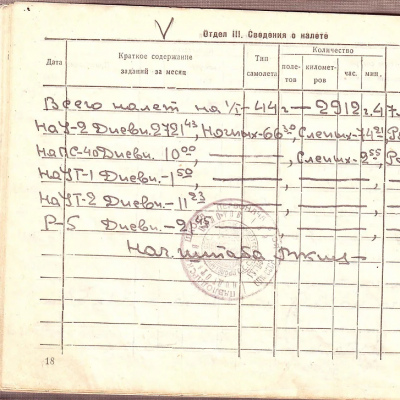 V
Отдел III. Сведения о налете
Дата
Краткое содержание заданий за месяц
Тип самолета
Количество
полетов
километров
час.
мин.
Всего налет на 1/I-44 г — 2912 ч. 47
На У-2 Дневн. 2721 43, Ночных-66 30, Слепых-74 21,
На ПС-40 Дневн. 10 00, Слепых-2 55,
На УТ-1 Дневн.-1 50,
На УТ-2 Дневн.-11 23
Р-5 Дневн.-21 45
Нач. штаба
18